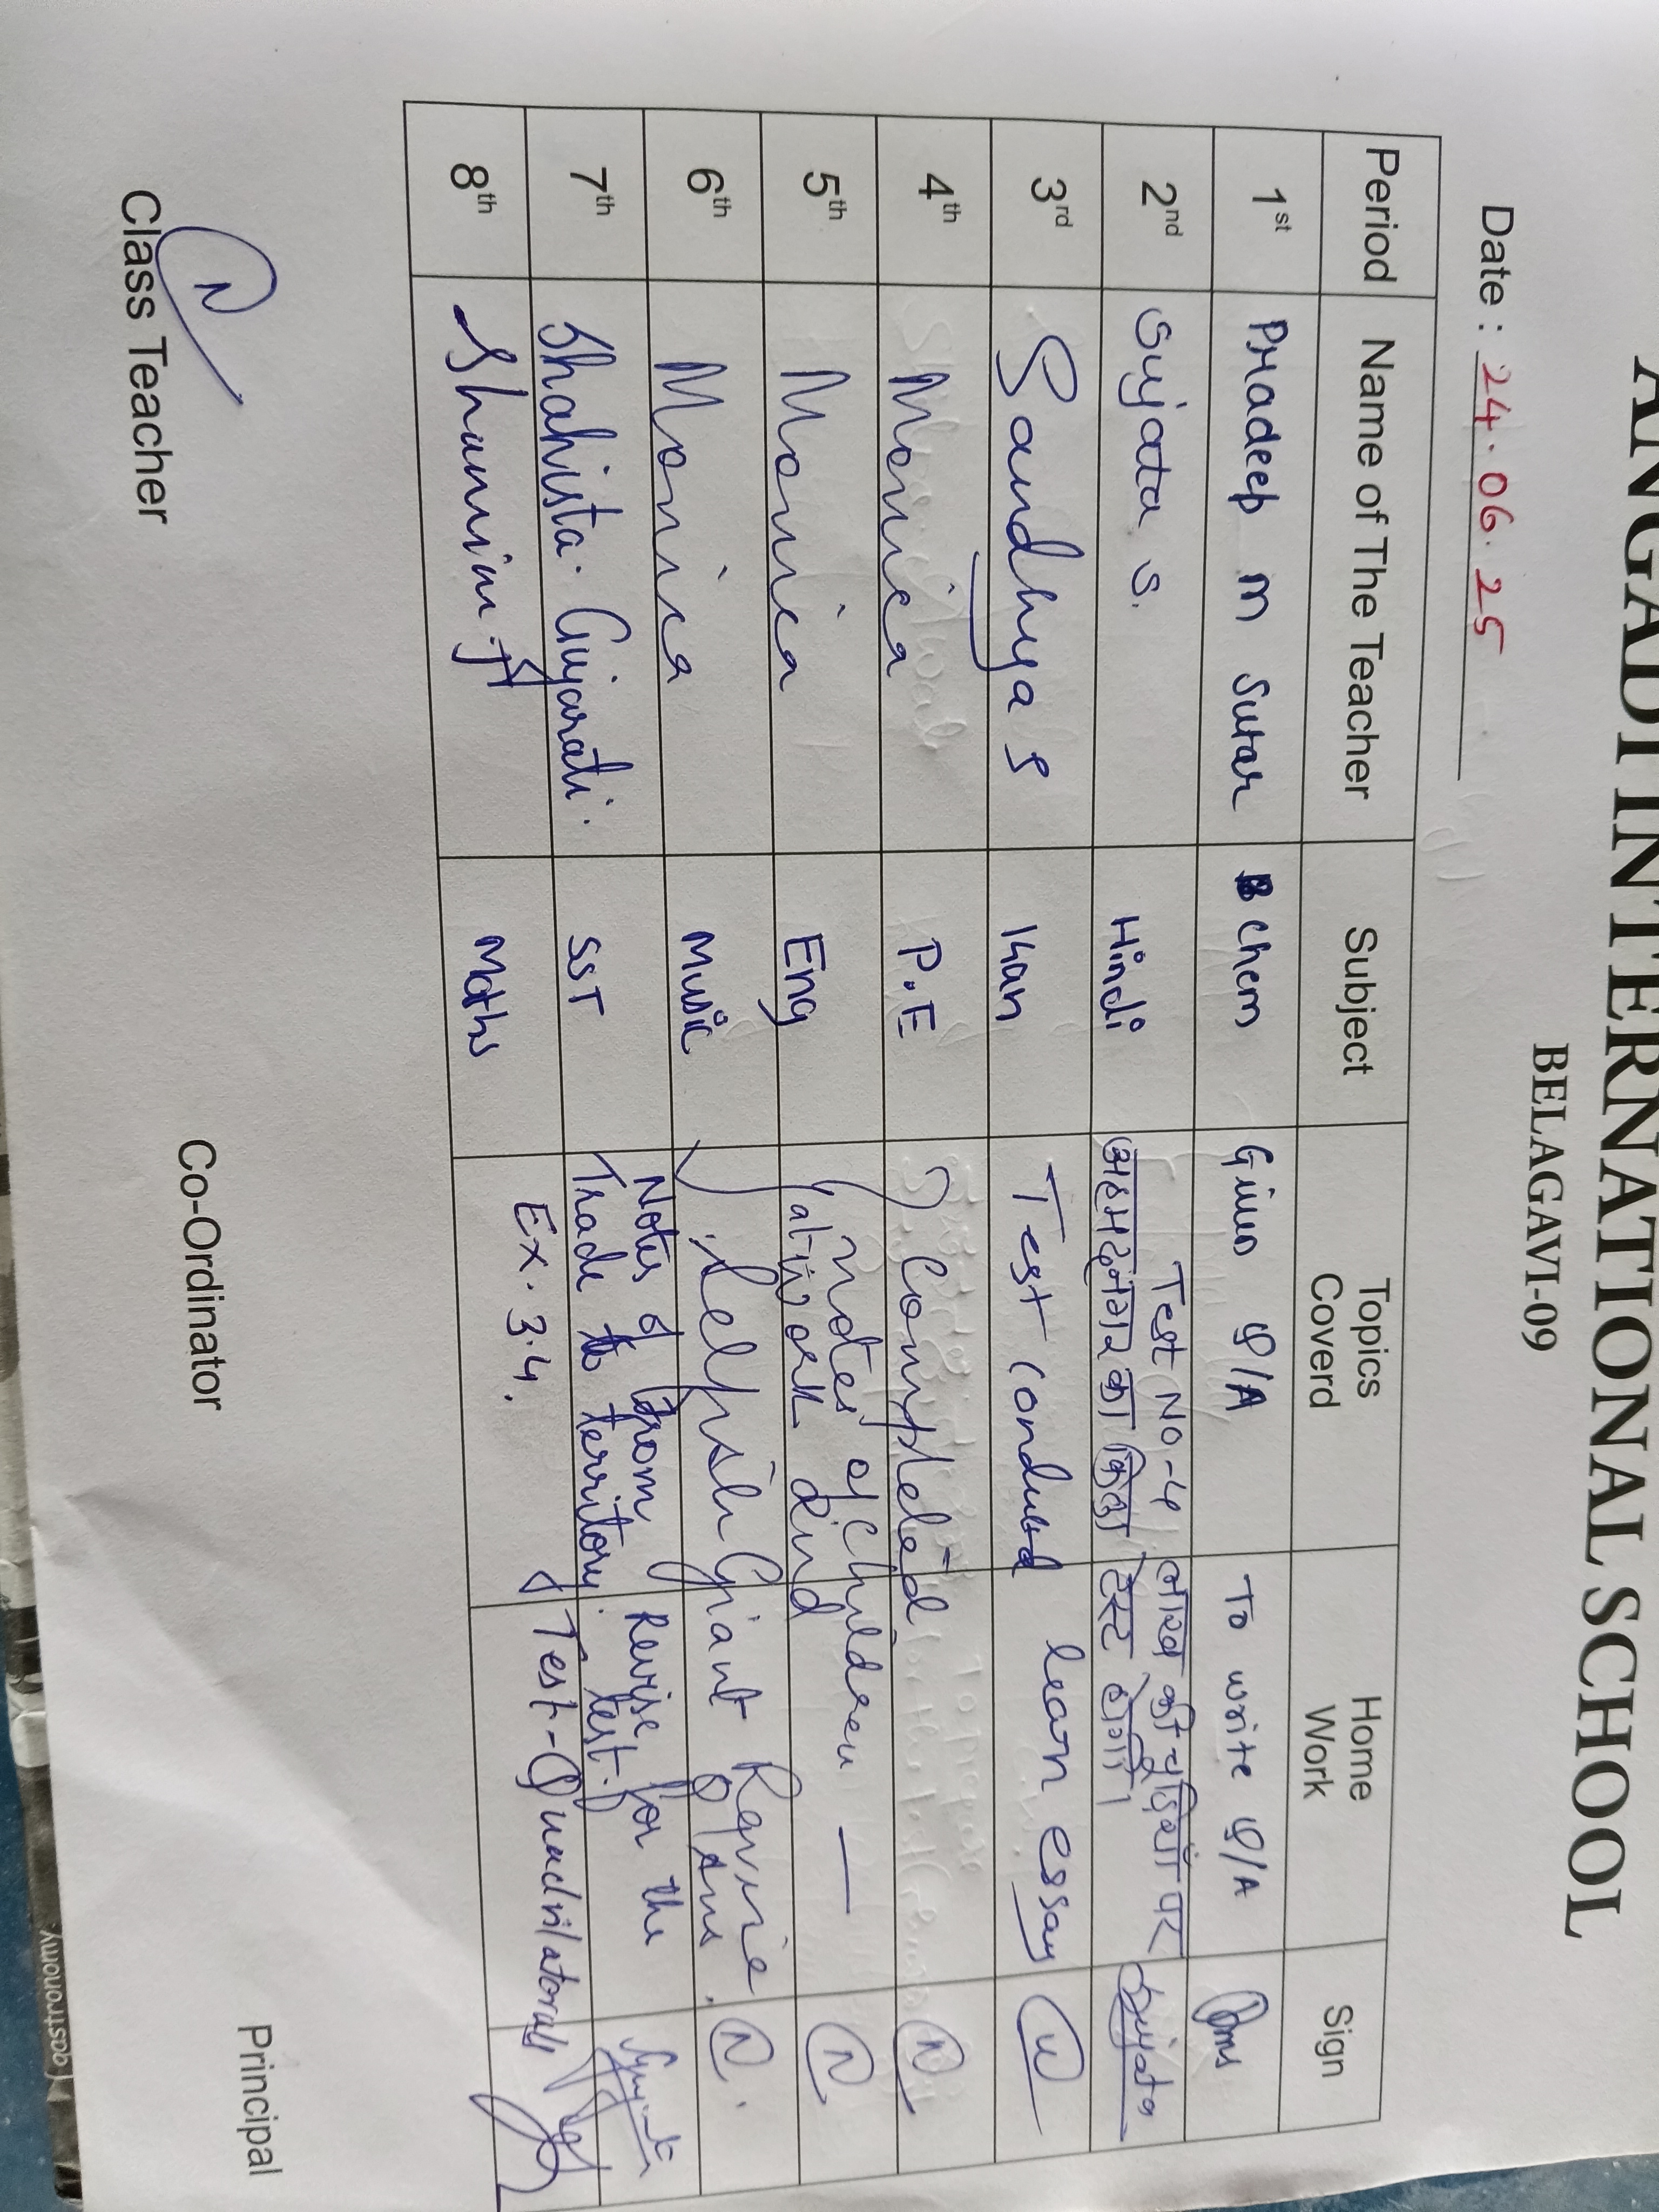 ANGADI INTERNATIONAL SCHOOL
BELAGAVI-09
Date : 24.06.25
Period Name of The Teacher Subject Topics Coverd Home Work Sign
1st Pradeep M Sutar Chem Given Q/A To write Q/A Pms
2nd Sujata S. Hindi Test No-4 अहमदनगर का किला लाख की चूड़ियाँ पर टेस्ट होगी। Sujata
3rd Sandhya S Kan Test conducted learn essay
4th Monica P.E Completed
5th Monica Eng notes of children —
6th Monica Music Selfish Giant Revise Q Ans. N.
7th Shahista. Gujarati. SST Notes of From Trade to territory. Revise for the test.
8th Maths Ex. 3.4. Test-Quadrilaterals
N
Class Teacher Co-Ordinator Principal
Gastronomy